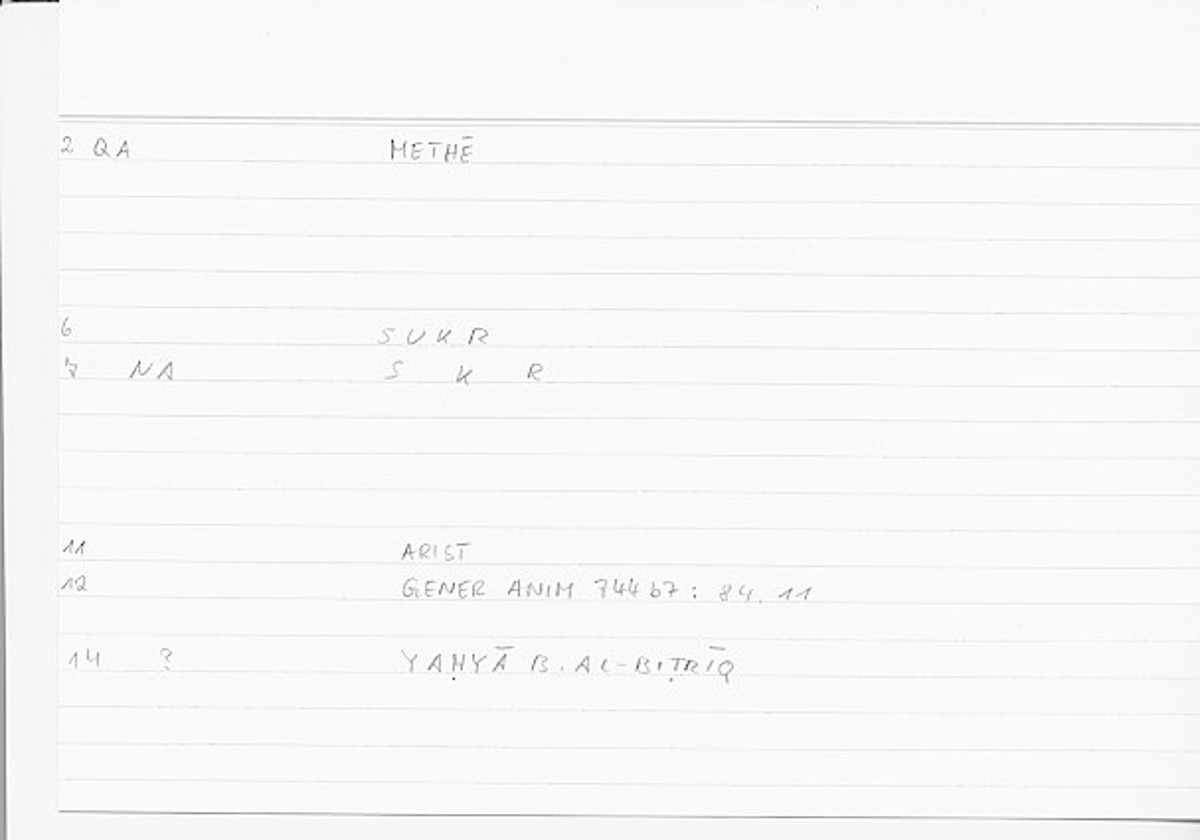 2 QA METHĒ
6 SUKR
7 NA S K R
11 ARIST
12 GENER ANIM 744b7: 84.11
14 ? YAḤYĀ B. AL-BIṬRĪQ